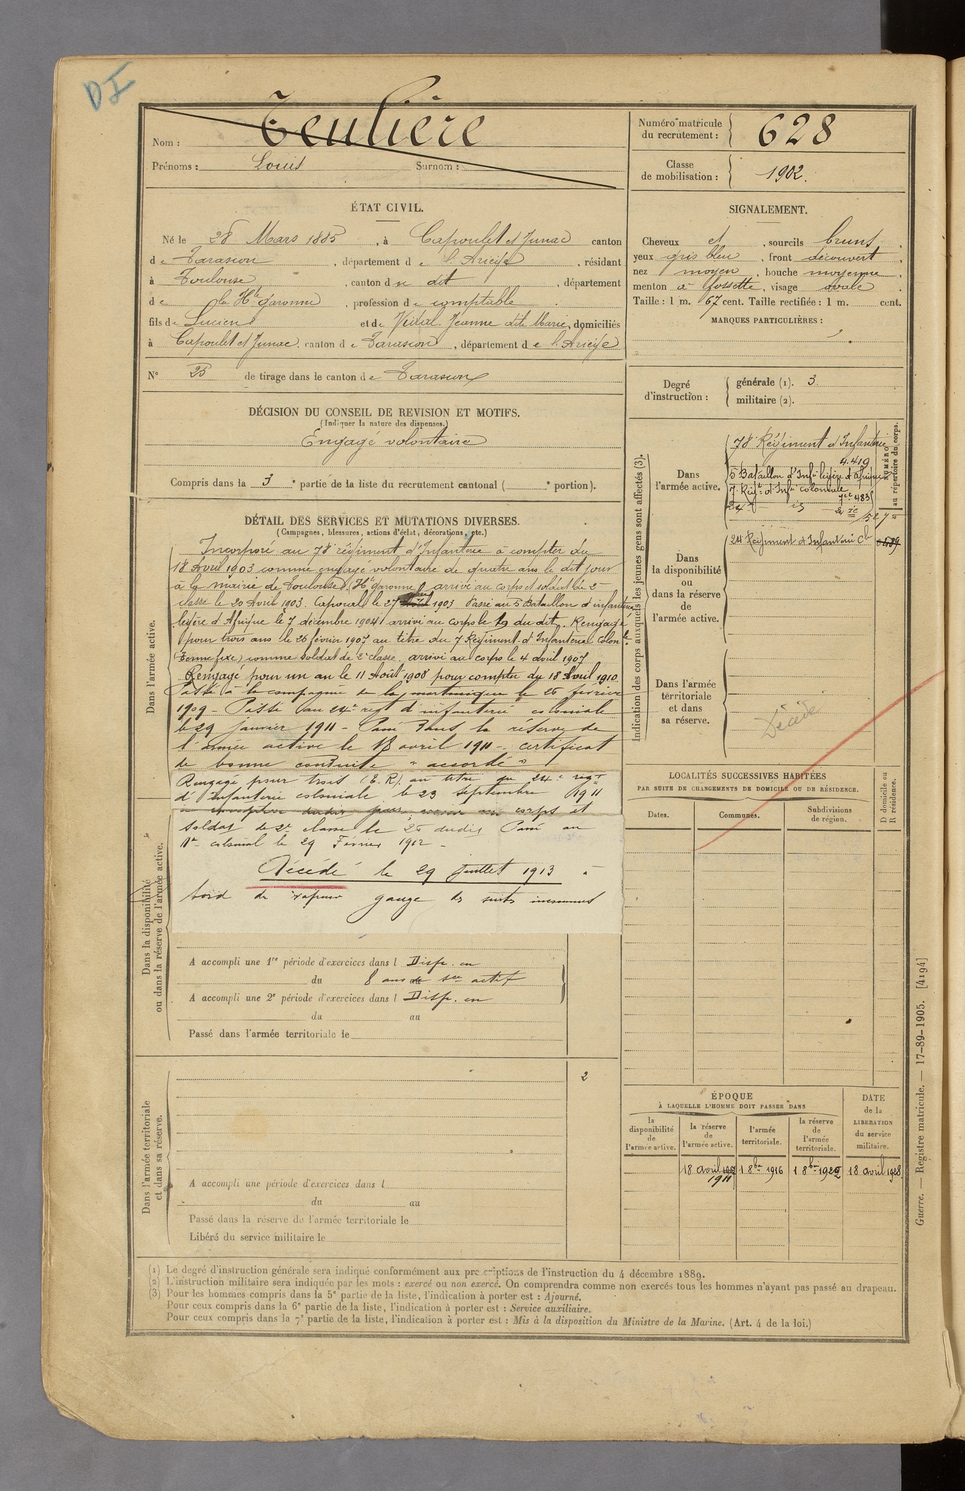 DI
Nom : Teulière
Prénoms : Louis Surnom :
Numéro matricule du recrutement : 628
Classe de mobilisation : 1902.
ÉTAT CIVIL.
Né le 28 Mars 1885, à Capoulet et Junac canton
de Tarascon, département de l'Ariège, résidant
à Toulouse, canton du dit, département
de la Hte Garonne, profession de comptable
fils de Lucien et de Vidal Jeanne dite Marie, domiciliés
à Capoulet et Junac, canton de Tarascon, département de l'Ariège
N° 25 de tirage dans le canton de Tarascon
SIGNALEMENT.
Cheveux et , sourcils bruns,
yeux gris bleu, front découvert,
nez moyen, bouche moyenne,
menton à fossette, visage ovale
Taille : 1 m. 67 cent. Taille rectifiée : 1 m. cent.
MARQUES PARTICULIÈRES :
DÉCISION DU CONSEIL DE REVISION ET MOTIFS.
(Indiquer la nature des dispenses.)
Engagé volontaire
Compris dans la 3e partie de la liste du recrutement cantonal ( e portion).
Degré d'instruction : générale (1). 3
militaire (2).
DÉTAIL DES SERVICES ET MUTATIONS DIVERSES.
(Campagnes, blessures, actions d'éclat, décorations, etc.)
Dans l'armée active.
Incorporé au 78e régiment d'Infanterie à compter du
18 Avril 1903 comme engagé volontaire de quatre ans le dit jour
à la mairie de Toulouse (Hte Garonne) arrivé au corps et soldat de 2e
classe le 20 Avril 1903. Caporal le 27 1903 Passé au 5 Bataillon d'infanterie
légère d'Afrique le 7 décembre 1904 arrivé au corps le 19 du dit. Rengagé
pour trois ans le 26 février 1907 au titre du 7 Régiment d'Infanterie Colonle
comme soldat de 2e classe, arrivé au corps le 4 avril 1907
Rengagé pour un an le 11 Août 1908 pour compter du 18 Avril 1910
Passé à la compagnie de la martinique le 26 février
1909 - Passé au 24e regt d'infanterie coloniale
le 29 janvier 1911 - Passé dans la réserve de
l'armée active le 18 avril 1911 - certificat
de bonne conduite "accordé"
Rengagé pour trois (E.R.) au titre du 24e regt
d'Infanterie coloniale le 23 septembre 1911
à compter dudit jour, arrivé au corps et
soldat de 2e classe le 25 dudit Passé au
1er colonial le 29 Février 1912 -
Décédé le 29 juillet 1913 à
bord de vapeur gange de suites inconnues
Dans la disponibilité ou dans la réserve de l'armée active.
A accompli une 1re période d'exercices dans l Disp. en
du 8 ans de sce actif
A accompli une 2e période d'exercices dans l Disp. en
du au
Passé dans l'armée territoriale le
Dans l'armée territoriale et dans sa réserve.
2
A accompli une période d'exercices dans l
du au
Passé dans la réserve de l'armée territoriale le
Libéré du service militaire le
Indication des corps auxquels les jeunes gens sont affectés (3).
NUMÉRO au répertoire du corps.
Dans l'armée active.
78e Régiment d'Infanterie
4.419
5 Bataillon d'Infie légère d'Afrique
7 Régt d'Infie coloniale
Dans la disponibilité ou dans la réserve de l'armée active.
24 Régiment d'Infanterie Cle
Dans l'armée territoriale et dans sa réserve.
Décédé
LOCALITÉS SUCCESSIVES HABITÉES
PAR SUITE DE CHANGEMENTS DE DOMICILE OU DE RÉSIDENCE.
Dates. Communes. Subdivisions de région. D domicile ou R résidence.
ÉPOQUE
À LAQUELLE L'HOMME DOIT PASSER DANS
la disponibilité de l'armée active. la réserve de l'armée active. l'armée territoriale. la réserve de l'armée territoriale. DATE de la LIBÉRATION du service militaire.
18 avril 1911 1 8bre 1916 1 8bre 1922 18 avril 1928.
(1) Le degré d'instruction générale sera indiqué conformément aux prescriptions de l'instruction du 4 décembre 1889.
(2) L'instruction militaire sera indiquée par les mots : exercé ou non exercé. On comprendra comme non exercés tous les hommes n'ayant pas passé au drapeau.
(3) Pour les hommes compris dans la 5e partie de la liste, l'indication à porter est : Ajourné.
Pour ceux compris dans la 6e partie de la liste, l'indication à porter est : Service auxiliaire.
Pour ceux compris dans la 7e partie de la liste, l'indication à porter est : Mis à la disposition du Ministre de la Marine. (Art. 4 de la loi.)
Guerre. — Registre matricule. — 17-89-1905. [4194]